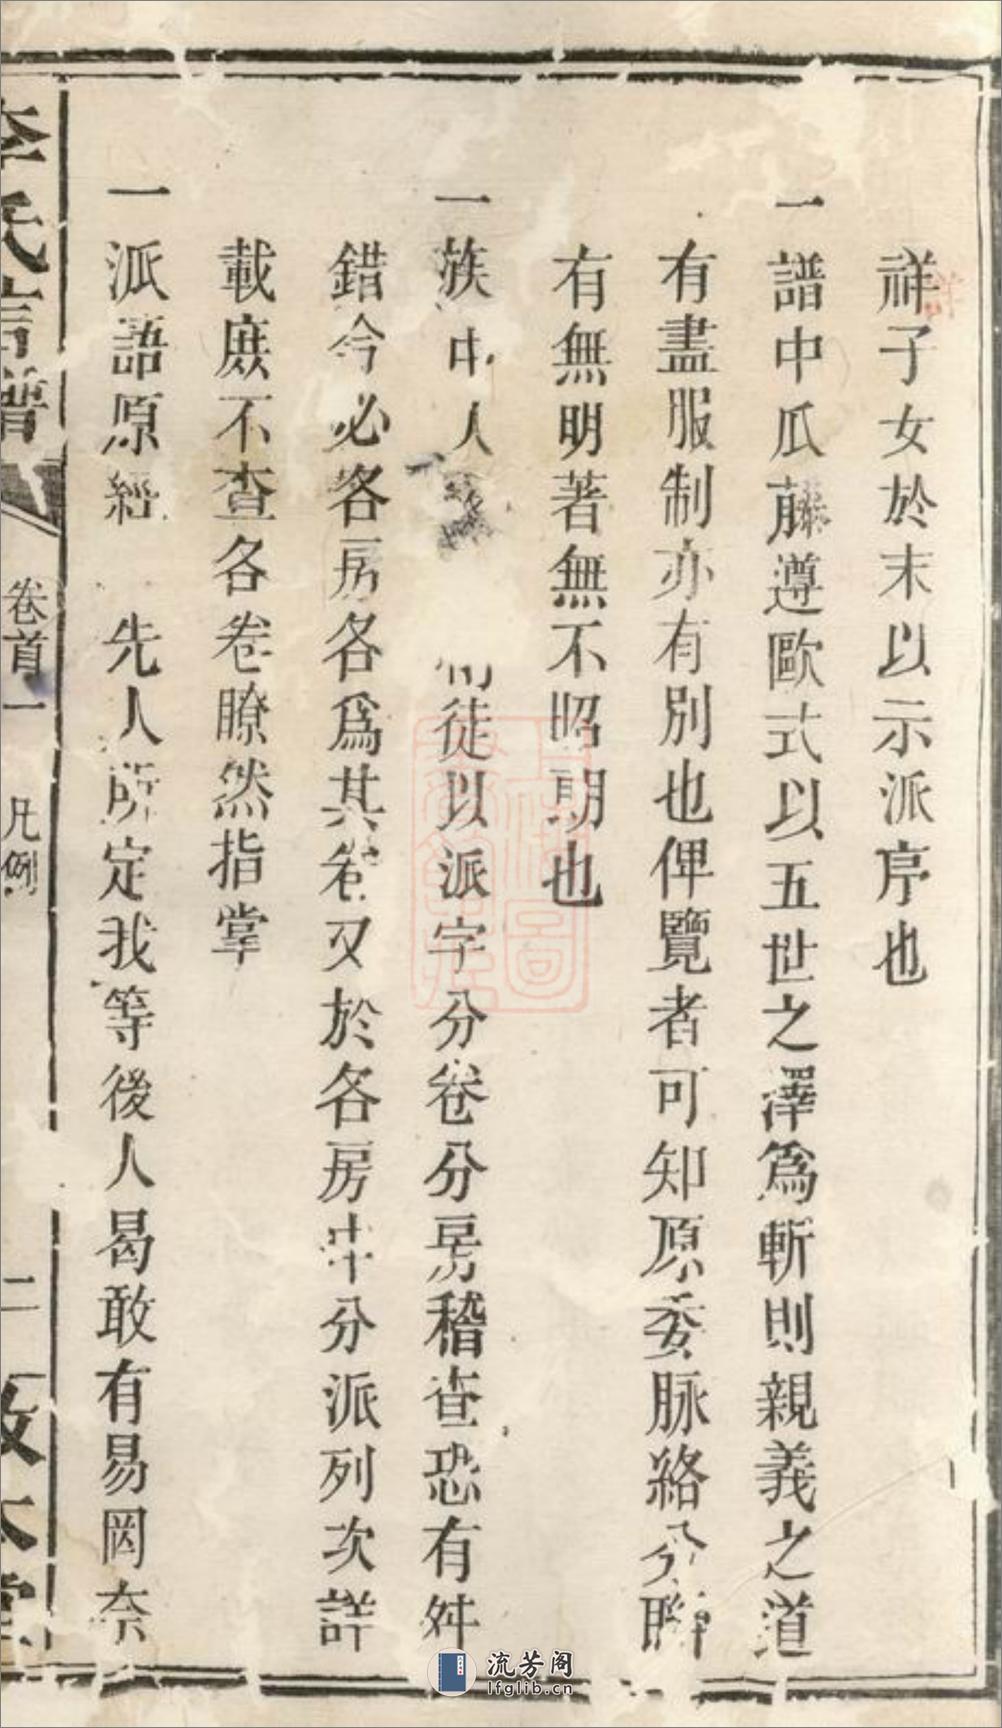 祥子女於末以示派序也
一譜中瓜藤遵歐式以五世之澤爲斬則親義之道
有盡服制亦有別也俾覽者可知原委脉絡分聯
有無明著無不昭朗也
一族中人徒以派字分卷分房稽查恐有舛
錯今必各房各爲其卷又於各房中分派列次詳
載庶不查各卷瞭然指掌
一派語原經 先人所定我等後人曷敢有易罔奈
李氏宗譜 卷首一 凡例 二 敦本堂
流芳阁
lfglib.cn